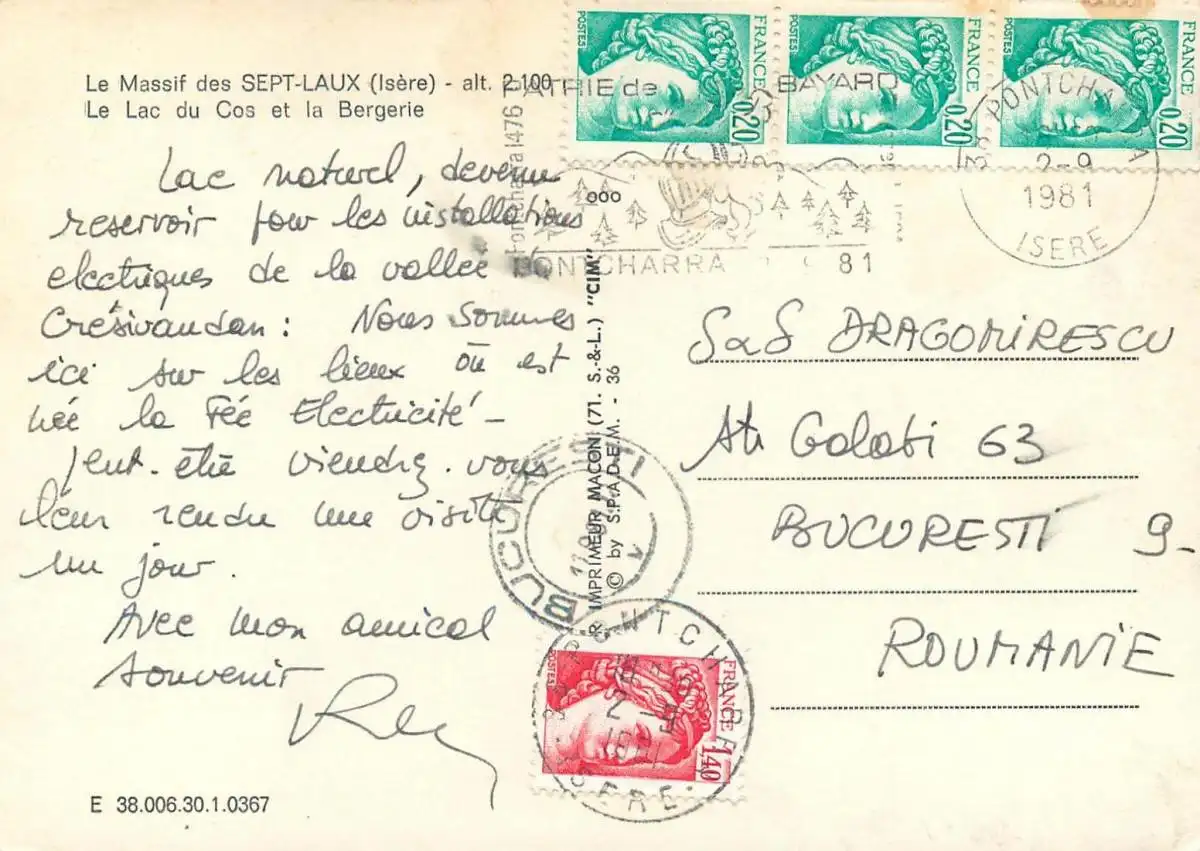 Le Massif des SEPT-LAUX (Isère) - alt. 2.100
Le Lac du Cos et la Bergerie
Lac naturel, devenu
reservoir pour les installations
electriques de la vallée du
Crésivaudan: Nous sommes
ici sur les lieux où est
née la Fée Electricité -
peut-être viendrez-vous
leur rendre une visite
un jour.
Avec mon amical
souvenir
E 38.006.30.1.0367
POSTES FRANCE 0,20
POSTES FRANCE 0,20
POSTES FRANCE 0,20
PATRIE de BAYARD
Pontcharra 1476
PONTCHARRA
81
PONTCHARRA
2-9
1981
ISERE
ooo
IMPRIMEUR MACON (71. S.-&-L.) "CIM"
© by S.P.A.D.E.M. - 36
SaS DRAGOMIRESCU
Str Galati 63
BUCURESTI 9-
ROUMANIE
BUCURESTI
POSTES FRANCE 1,40
PONTCHARRA
2-9
1981
ISERE